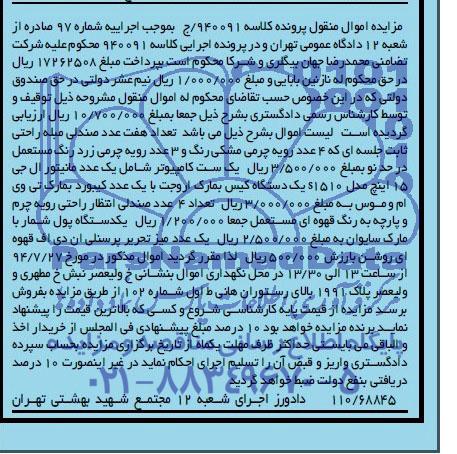 مزایده اموال منقول پرونده کلاسه ۹۴۰۰۹۱/ج بموجب اجراییه شماره ۹۷ صادره از
شعبه ۱۲ دادگاه عمومی تهران و در پرونده اجرایی کلاسه ۹۴۰۰۹۱ محکوم علیه شرکت
تضامنی محمدرضا جهان بیگلری و شرکا محکوم است بپرداخت مبلغ ۱۷۲۶۲۵۰۸ ریال
در حق محکوم له نازنین بابایی و مبلغ ۱/۰۰۰/۰۰۰ ریال نیم عشر دولتی در حق صندوق
دولتی که در این خصوص حسب تقاضای محکوم له اموال منقول مشروحه ذیل توقیف و
توسط کارشناس رسمی دادگستری بشرح ذیل جمعا بمبلغ ۱۰/۷۰۰/۰۰۰ ریال ارزیابی
گردیده است لیست اموال بشرح ذیل می باشد تعداد هفت عدد صندلی مبله راحتی
ثابت جلسه ای که ۴ عدد رویه چرمی مشکی رنگ و ۳ عدد رویه چرمی زرد رنگ مستعمل
در حد نو بمبلغ ۳/۵۰۰/۰۰۰ ریال یک ست کامپیوتر شامل یک عدد مانیتور ال جی
۱۵ اینچ مدل s۱۵۱۰ یک دستگاه کیس بمارک اروجت با یک عدد کیبورد بمارک تی وی
ام و موس به مبلغ ۳/۰۰۰/۰۰۰ ریال تعداد ۴ عدد صندلی انتظار راحتی رویه چرم
و پارچه به رنگ قهوه ای مستعمل جمعا ۱/۲۰۰/۰۰۰ ریال یکدستگاه پول شمار با
مارک سایوان به مبلغ ۲/۵۰۰/۰۰۰ ریال یک عدد میز تحریر پرسنلی ان دی اف قهوه
ای روشن بارزش ۵۰۰/۰۰۰ ریال لذا مقرر گردید اموال مذکور در مورخ ۹۴/۷/۲۷
از ساعت ۱۳ الی ۱۳/۳۰ در محل نگهداری اموال بنشانی خ ولیعصر نبش خ مطهری و
ولیعصر پلاک ۱۹۹۱ بالای رستوران هانی ط اول شماره ۱۰۲ از طریق مزایده بفروش
برسد مزایده از قیمت پایه کارشناسی شروع و کسی که بالاترین قیمت را پیشنهاد
نماید برنده مزایده خواهد بود ۱۰ درصد مبلغ پیشنهادی فی المجلس از خریدار اخذ
و الباقی می بایستی حداکثر ظرف مهلت یکماه از تاریخ برگزاری مزایده بحساب سپرده
دادگستری واریز و قبض آن را تسلیم اجرای احکام نماید در غیر اینصورت ۱۰ درصد
دریافتی بنفع دولت ضبط خواهد گردید
۱۱۰/۶۸۸۴۵ دادورز اجرای شعبه ۱۲ مجتمع شهید بهشتی تهران